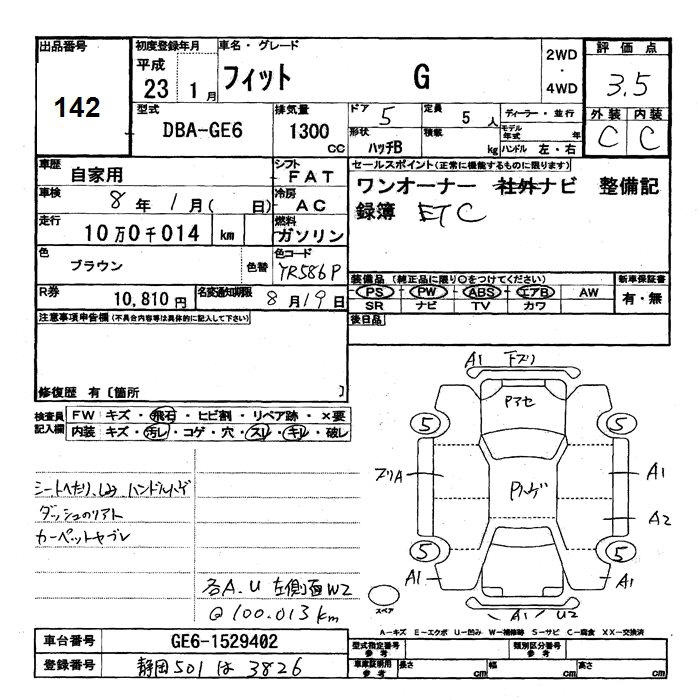 出品番号 142
初度登録年月 平成 23 1月
車名・グレード フィット G
2WD・4WD
評価点 3.5
外装 C 内装 C
型式 DBA-GE6
排気量 1300 CC
ドア 5
定員 5人
ディーラー・並行
形状 ハッチB
積載 kg
モデル年式 年
ハンドル 左・右
車歴 自家用
シフト FAT
車検 8年 1月( 日)
冷房 AC
走行 10万0千014 km
燃料 ガソリン
色 ブラウン 色替
色コード YR586P
R券 10,810円
名変通知期限 8月19日
セールスポイント(正常に機能するものに限ります)
ワンオーナー 社外ナビ 整備記
録簿 ETC
装備品 (純正品に限り○をつけてください)
新車保証書
PS PW ABS エアB AW
有・無
SR ナビ TV カワ
後日品
注意事項申告欄(不具合内容等は具体的に記入して下さい)
修復歴 有〔箇所 〕
検査員記入欄
FW キズ・飛石・ヒビ割・リペア跡・×要
内装 キズ・汚レ・コゲ・穴・スレ・キレ・破レ
シートヘたり、しみ ハンドルハゲ
ダッシュのリアト
カーペットヤブレ
各A.U 左側面W2
@100.013km
A1 下ズリ
Pマセ
5 5
ズリA Pハゲ A1
A2
5 5
A1 A1
A1 U2
スペア
A-キズ E-エクボ U-凹み W-補修跡 S-サビ C-腐食 XX-交換済
車台番号 GE6-1529402
登録番号 静岡 501 は 3826
型式指定番号 参考
類別区分番号 参考
車庫証明用 参考 長さ cm 幅 cm 高さ cm